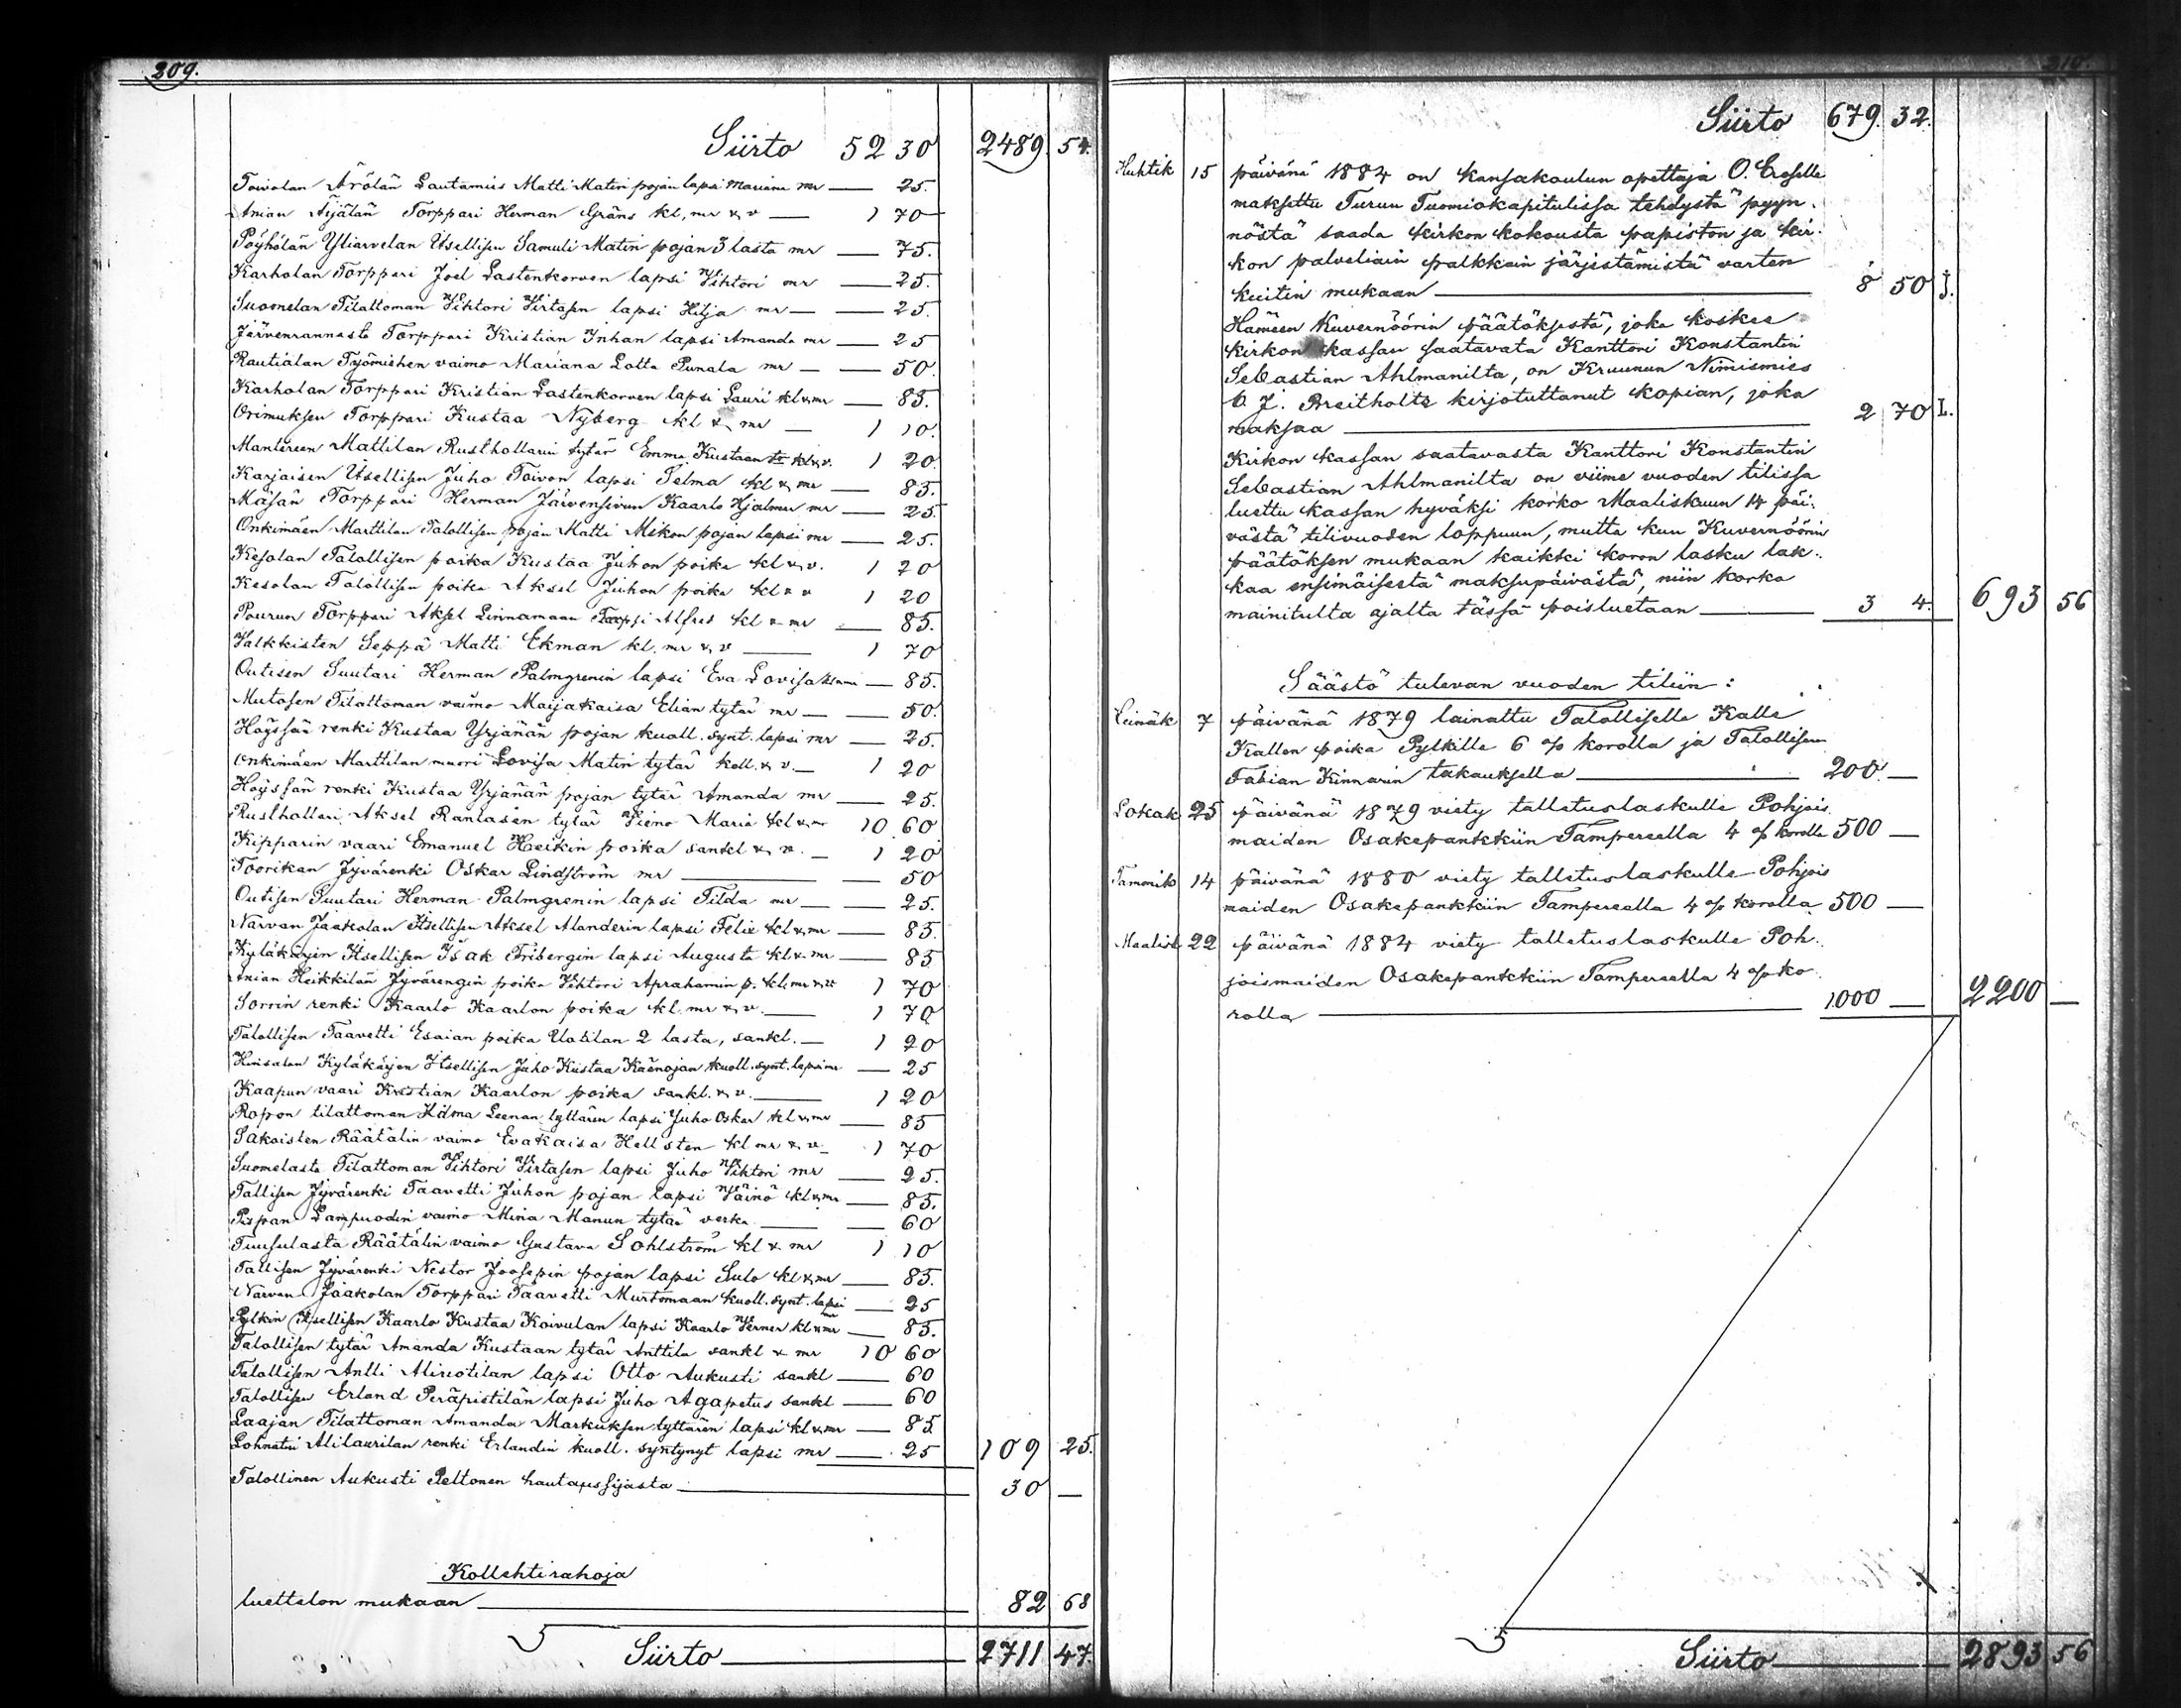 209.
Siirto 52 30 2489. 54.
Toivolan Arölän Lautamies Matti Matin pojan lapsi Mariana mr — 25.
Anian Äijälän Torppari Herman Gräns kl, mr & v — 1 70
Pöyhölän Yliarvelan Itsellisen Samuli Matin pojan 3 lasta mr — 75.
Karholan Torppari Joel Lastenkorven lapsi Vihtori mr — 25.
Suomelan Tilattoman Vihtori Virtasen lapsi Hilja mr — 25.
Järvenrannasta Torppari Kristian Inhan lapsi Amanda mr — 25
Rautialan Työmiehen vaimo Mariana Lotta Punala mr — 50.
Karholan Torppari Kristian Lastenkorven lapsi Lauri kl & mr — 85.
Orimuksen Torppari Kustaa Nyberg kl & mr — 1 10.
Mantereen Mattilan Rusthollarin tytär Emma Kustaan tr kl & v. 1 20.
Karjaisen Itsellisen Juho Toivon lapsi Selma kl & mr — 85.
Mäsän Torppari Herman Järvensivun Kaarlo Hjalmar mr — 25.
Onkimäen Marttilan Talollisen pojan Matti Mikon pojan lapsi mr — 25.
Kesolan Talollisen poika Kustaa Juhon poika kl & v. 1 20
Kesolan Talollisen poika Aksel Juhon poika kl & v 1 20
Pourun Torppari Aksel Linnamaan Lapsi Alfred kl & mr — 85.
Valkkisten Seppä Matti Ekman kl. mr & v — 1 70
Outisen Suutari Herman Palmgrenin lapsi Eva Lovisa kl & mr — 85.
Mutasen Tilattoman vaimo Maijakaisa Elian tytär mr — 50.
Höyssän renki Kustaa Yrjänän pojan kuoll. synt. lapsi mr — 25.
Onkimäen Marttilan muori Lovisa Matin tytär kell. & v. — 1 20
Höyssän renki Kustaa Yrjänän pojan tytär Amanda mr — 25.
Rusthollari Aksel Rantasen tytär Vieno Maria kl & mr 10 60
Kipparin vaari Emanuel Heikin poika sankl & v. — 1 20
Toorikan Jyvärenki Oskar Lindström mr — 50
Outisen Suutari Herman Palmgrenin lapsi Tilda mr — 25.
Narvan Jaakolan Itsellisen Aksel Alanderin lapsi Felix kl & mr — 85.
Kyläkäyjin Itsellisen Isak Fribergin lapsi Augusta kl & mr — 85
Anian Heikkilän Jyvärengin poika Vihtori Aprahamin p. kl. mr & v 1 70
Sorrin renki Kaarlo Kaarlon poika kl. mr & v. — 1 70
Talollisen Taavetti Esaian poika Uotilan 2 lasta, sankl. — 1 20
Hinsalan Kyläkäyjen Itsellisen Juho Kustaa Käenojan kuoll. synt. lapsi mr — 25
Kaapun vaari Kristian Kaarlon poika sankl. & v. — 1 20
Ropon tilattoman Hilma Leenan tyttären lapsi Juho Oskar kl & mr — 85
Sakoisten Räätälin vaimo Evakaisa Hellsten kl mr & v — 1 70
Suomelasta Tilattoman Vihtori Virtasen lapsi Juho Vihtori mr — 25.
Tallisen Jyvärenki Taavetti Juhon pojan lapsi Väinö kl & mr — 85.
Pispan Lampuodin vaimo Miina Manun tytär verka — 60
Tuusulasta Räätälin vaimo Gustava Sohlström kl & mr 1 10
Tallisen Jyvärenki Nestor Joosepin pojan lapsi Sulo kl & mr — 85.
Narvan Jaakolan Torppari Taavetti Murtomaan kuoll. synt. lapsi mr — 25
Pylkin Itsellisen Kaarlo Kustaa Koivulan lapsi Kaarlo Verner kl & mr — 85.
Talollisen tytär Amanda Kustaan tytär Anttila sankl & mr 10 60
Talollisen Antti Alinotilan lapsi Otto Aukusti sankl — 60
Talollisen Erland Peräpistilän lapsi Juho Agapetus sankl — 60
Laajan Tilattoman Amanda Markuksen tyttären lapsi kl & mr — 85
Lohnatin Alilaurilan renki Erlandin kuoll. syntynyt lapsi mr — 25 109 25.
Talollinen Aukusti Peltonen hautaussijasta — 30 —
Kollehtirahoja
luettelon mukaan — 82 68
Siirto — 2711 47.
210.
Siirto 679. 32.
Huhtik 15 päivänä 1884 on kansakoulun opettaja O. Eroselle
maksettu Turun Tuomiokapitulissa tehdystä pyyn-
nöstä saada kirkon kokousta papiston ja kir-
kon palveliain palkkain järjestämistä varten
kuitin mukaan — 8 50
Hämeen Kuvernöörin päätöksestä, joka koskee
kirkon kassan saatavata Kanttori Konstantin
Sebastian Ahlmanilta, on Kruunun Nimismies
O. J. Breitholtz kirjotuttanut kopian, joka
maksaa — 2 70 L.
Kirkon kassan saatavasta Kanttori Konstantin
Sebastian Ahlmanilta on viime vuoden tilissä
luettu kassan hyväksi korko Maaliskuun 14 päi-
västä tilivuoden loppuun, mutta kun Kuvernöörin
päätöksen mukaan kaikki koron lasku lak-
kaa ensimäisestä maksupäivästä, niin korko
mainitulta ajalta tässä poisluetaan — 3 4. 693 56
Säästö tulevan vuoden tiliin:
Heinäk 7 päivänä 1879 lainattu Talolliselle Kalle
Kallen poika Pylkille 6 % korolla ja Talollisen
Fabian Kinnarin takauksella — 200. —
Lokak 25 päivänä 1879 viety talletuslaskulle Pohjois
maiden Osakepankkiin Tampereella 4 % korolla 500 —
Tammik 14 päivänä 1880 viety talletuslaskulle Pohjois
maiden Osakepankkiin Tampereella 4 % korolla 500 —
Maalisk 22 päivänä 1884 viety talletuslaskulle Poh-
joismaiden Osakepankkiin Tampereella 4 % ko
rolla — 1000 — 2200 —
Siirto — 2893 56